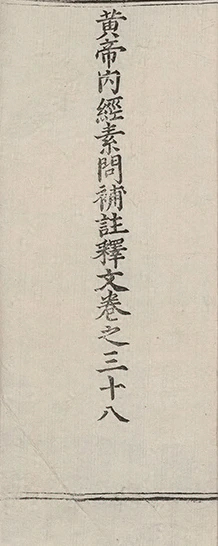 黃帝內經素問補註釋文卷之三十八